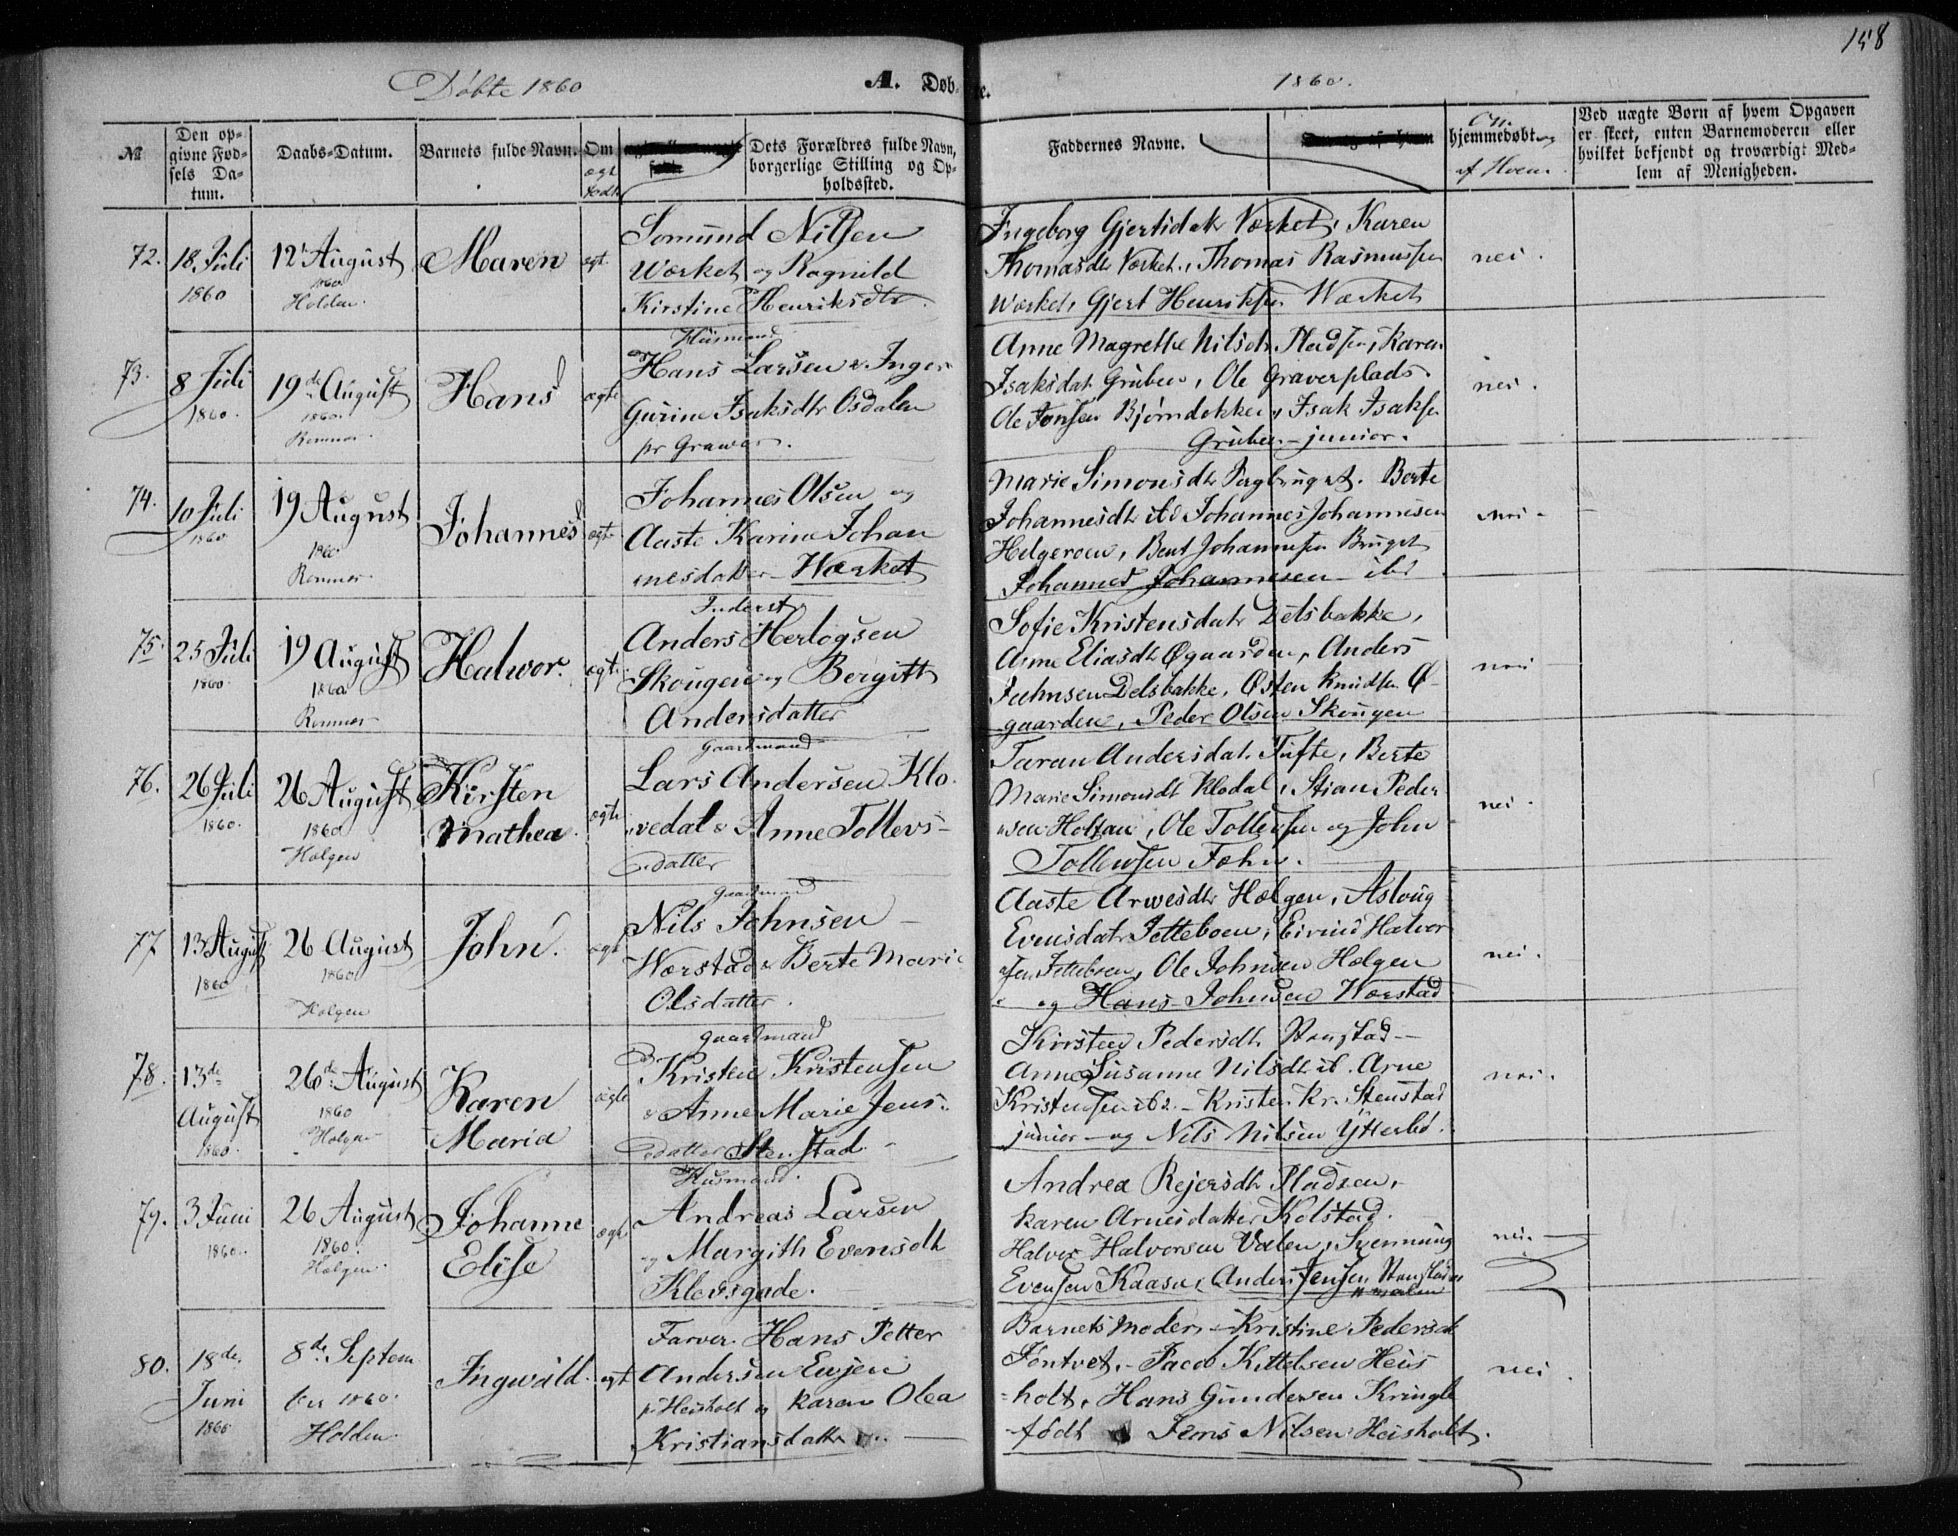 158
Döbte 1860
A. Døbte.
1860.
№
Den op-
givne Fød-
sels Da-
tum.
Daabs-Datum.
Barnets fulde Navn.
Om
ægte
født
Dets Forældres fulde Navn,
borgerlige Stilling og Op-
holdssted.
Faddernes Navne.
Om
hjemmedøbt og
af Hvem.
Ved uægte Børn af hvem Opgaven
er skeet, enten Barnemoderen eller
hvilket bekjendt og troværdigt Med-
lem af Menigheden.
72. 18 Juli
1860
12 August
1860
Holden.
Maren
ægt.
Somund Nilsen
Wærket og Ragnild
Kirstine Henriksdtr.
Ingeborg Gjertsdatr Værket, Karen
Thomasdtr Værket, Thomas Rasmussen
Wærket, Gjert Henriksen Wærket
nei.
73. 8 Juli
1860.
19de August
1860.
Romnæs.
Hans
ægte
Husmand
Hans Larsen & Inger
Gurine Isaksdtr Osdalen
pr Grawar.
Anne Magrethe Nilsdtr Pladsen, Karen
Isaksdat Gruben, Ole Graverplads.
Ole Jonsen Bjørndokken, Isak Isaksen
Gruben junior.
nei.
74. 10 Juli
1860
19 August
1860
Romnæs
Johannes
ægte
Johannes Olsen og
Aaste Karine Johan
nesdatter Wærket
Marie Simonsdtr Bruget. Berte
Johannesdtr ibd Johannes Johannesen
Helgeroen, Bent Johannesen Bruget
Johannes Johannesen ibd
nei
75. 25 Juli
1860.
19 August
1860
Romnæs
Halvor.
ægte
Inderst
Anders Herlogsen
Skougen og Bergitte
Andersdatter
Sofie Kristensdatr Delsbakke,
Anne Eliasdtr Øgaarden, Anders
Delsbakke, Østen Knudsen Ø-
gaarden, Peder Olsen Skougen
nei
76. 26 Juli
1860.
26 August
1860
Helgen
Kirsten
Mathea.
ægte
Gaardmand
Lars Andersen Klo-
vedal & Anne Tollevs-
datter
Taran Andersdat. Tufte, Berte
Marie Simonsdt Klodal, Stian Peder
sen Holtan, Ole Tollevsen og John
Tollevsen Fæhn.
nei.
77 13 August
1860
26 August
1860
Helgen
John.
ægte
Gaardmand
Nils Johnsen
Værstad & Berte Marie
Olsdatter.
Aaste Arwesdtr Hælgen, Aslaug
Evensdatr Jetteboen, Eivind Halvor
sen Jetteboen, Ole Johnsen Hælgen
og Hans Johnsen Værstad
nei.
78. 13de
August
1860.
26de August
1860
Helgen
Karen
Maria
ægte
Gaardmand
Kristen Kristensen
& Anne Marie Jens.
datter Stenstad
Kirsten Pedersdtr Stenstad
Anne Susanne Nilsdtr ib. Arne
Kristensen ibd. Kristen Kr. Stenstad
junior og Nils Nilsen Ytterbö.
nei.
79. 3 Juni
1860.
26 August
1860.
Helgen.
Johanne
Elise
ægte
Husmand.
Andreas Larsen
og Margith Evensdtr
Klevsgade.
Andrea Rejersdtr Pladsen,
Karen Arnesdatter Kolstad.
Halvor Halvorsen Valen, Svennung
Evensen Kaasa, Anders Jensen Stenstad
nei.
80. 18de.
Juni
1860
8de Septem
ber 1860.
Holden.
Ingwald.
ægt
Farver Hans Petter
Andersen Ewjen
p Heisholt og Karen Olea
Kristiansdatter
Barnets Moder, Kristine Pedersdtr
Tontvet, Jacob Kittelsen Heis
holt, Hans Gundersen Kringle
födt Jens Nilsen Heisholt.
nei.